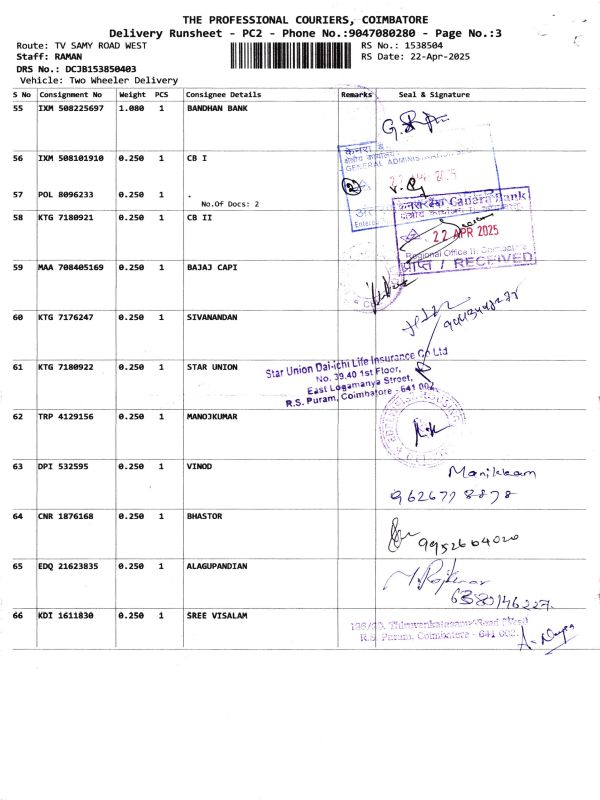 THE PROFESSIONAL COURIERS, COIMBATORE
Delivery Runsheet - PC2 - Phone No.:9047080280 - Page No.:3
Route: TV SAMY ROAD WEST
RS No.: 1538504
Staff: RAMAN
RS Date: 22-Apr-2025
DRS No.: DCJB153850403
Vehicle: Two Wheeler Delivery
S No Consignment No Weight PCS Consignee Details Remarks Seal & Signature
55 IXM 508225697 1.080 1 BANDHAN BANK
56 IXM 508101910 0.250 1 CB I
केनरा
GENERAL ADMINISTRATION
57 POL 8096233 0.250 1 .
No.Of Docs: 2
2
58 KTG 7180921 0.250 1 CB II
केनरा बैंक Canara Bank
22 APR 2025
Regional Office II, Coimbatore
प्राप्त / RECEIVED
59 MAA 708405169 0.250 1 BAJAJ CAPI
60 KTG 7176247 0.250 1 SIVANANDAN
61 KTG 7180922 0.250 1 STAR UNION
Star Union Dai-ichi Life Insurance Co Ltd
No. 39,40 1st Floor,
East Logamanya Street,
R.S. Puram, Coimbatore - 641 002.
62 TRP 4129156 0.250 1 MANOJKUMAR
63 DPI 532595 0.250 1 VINOD
Manikkam
9626778878
64 CNR 1876168 0.250 1 BHASTOR
9952604020
65 EDQ 21623835 0.250 1 ALAGUPANDIAN
6380146227
66 KDI 1611830 0.250 1 SREE VISALAM
Thiruvenkatasamy Road (West)
R.S. Puram, Coimbatore - 641 002.